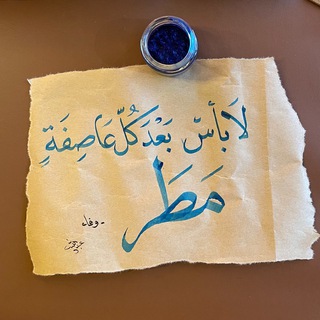 لَا بأسّ بَعْدَ كُلّ عَاصِفَةٍ
مَطَر
- وفاء